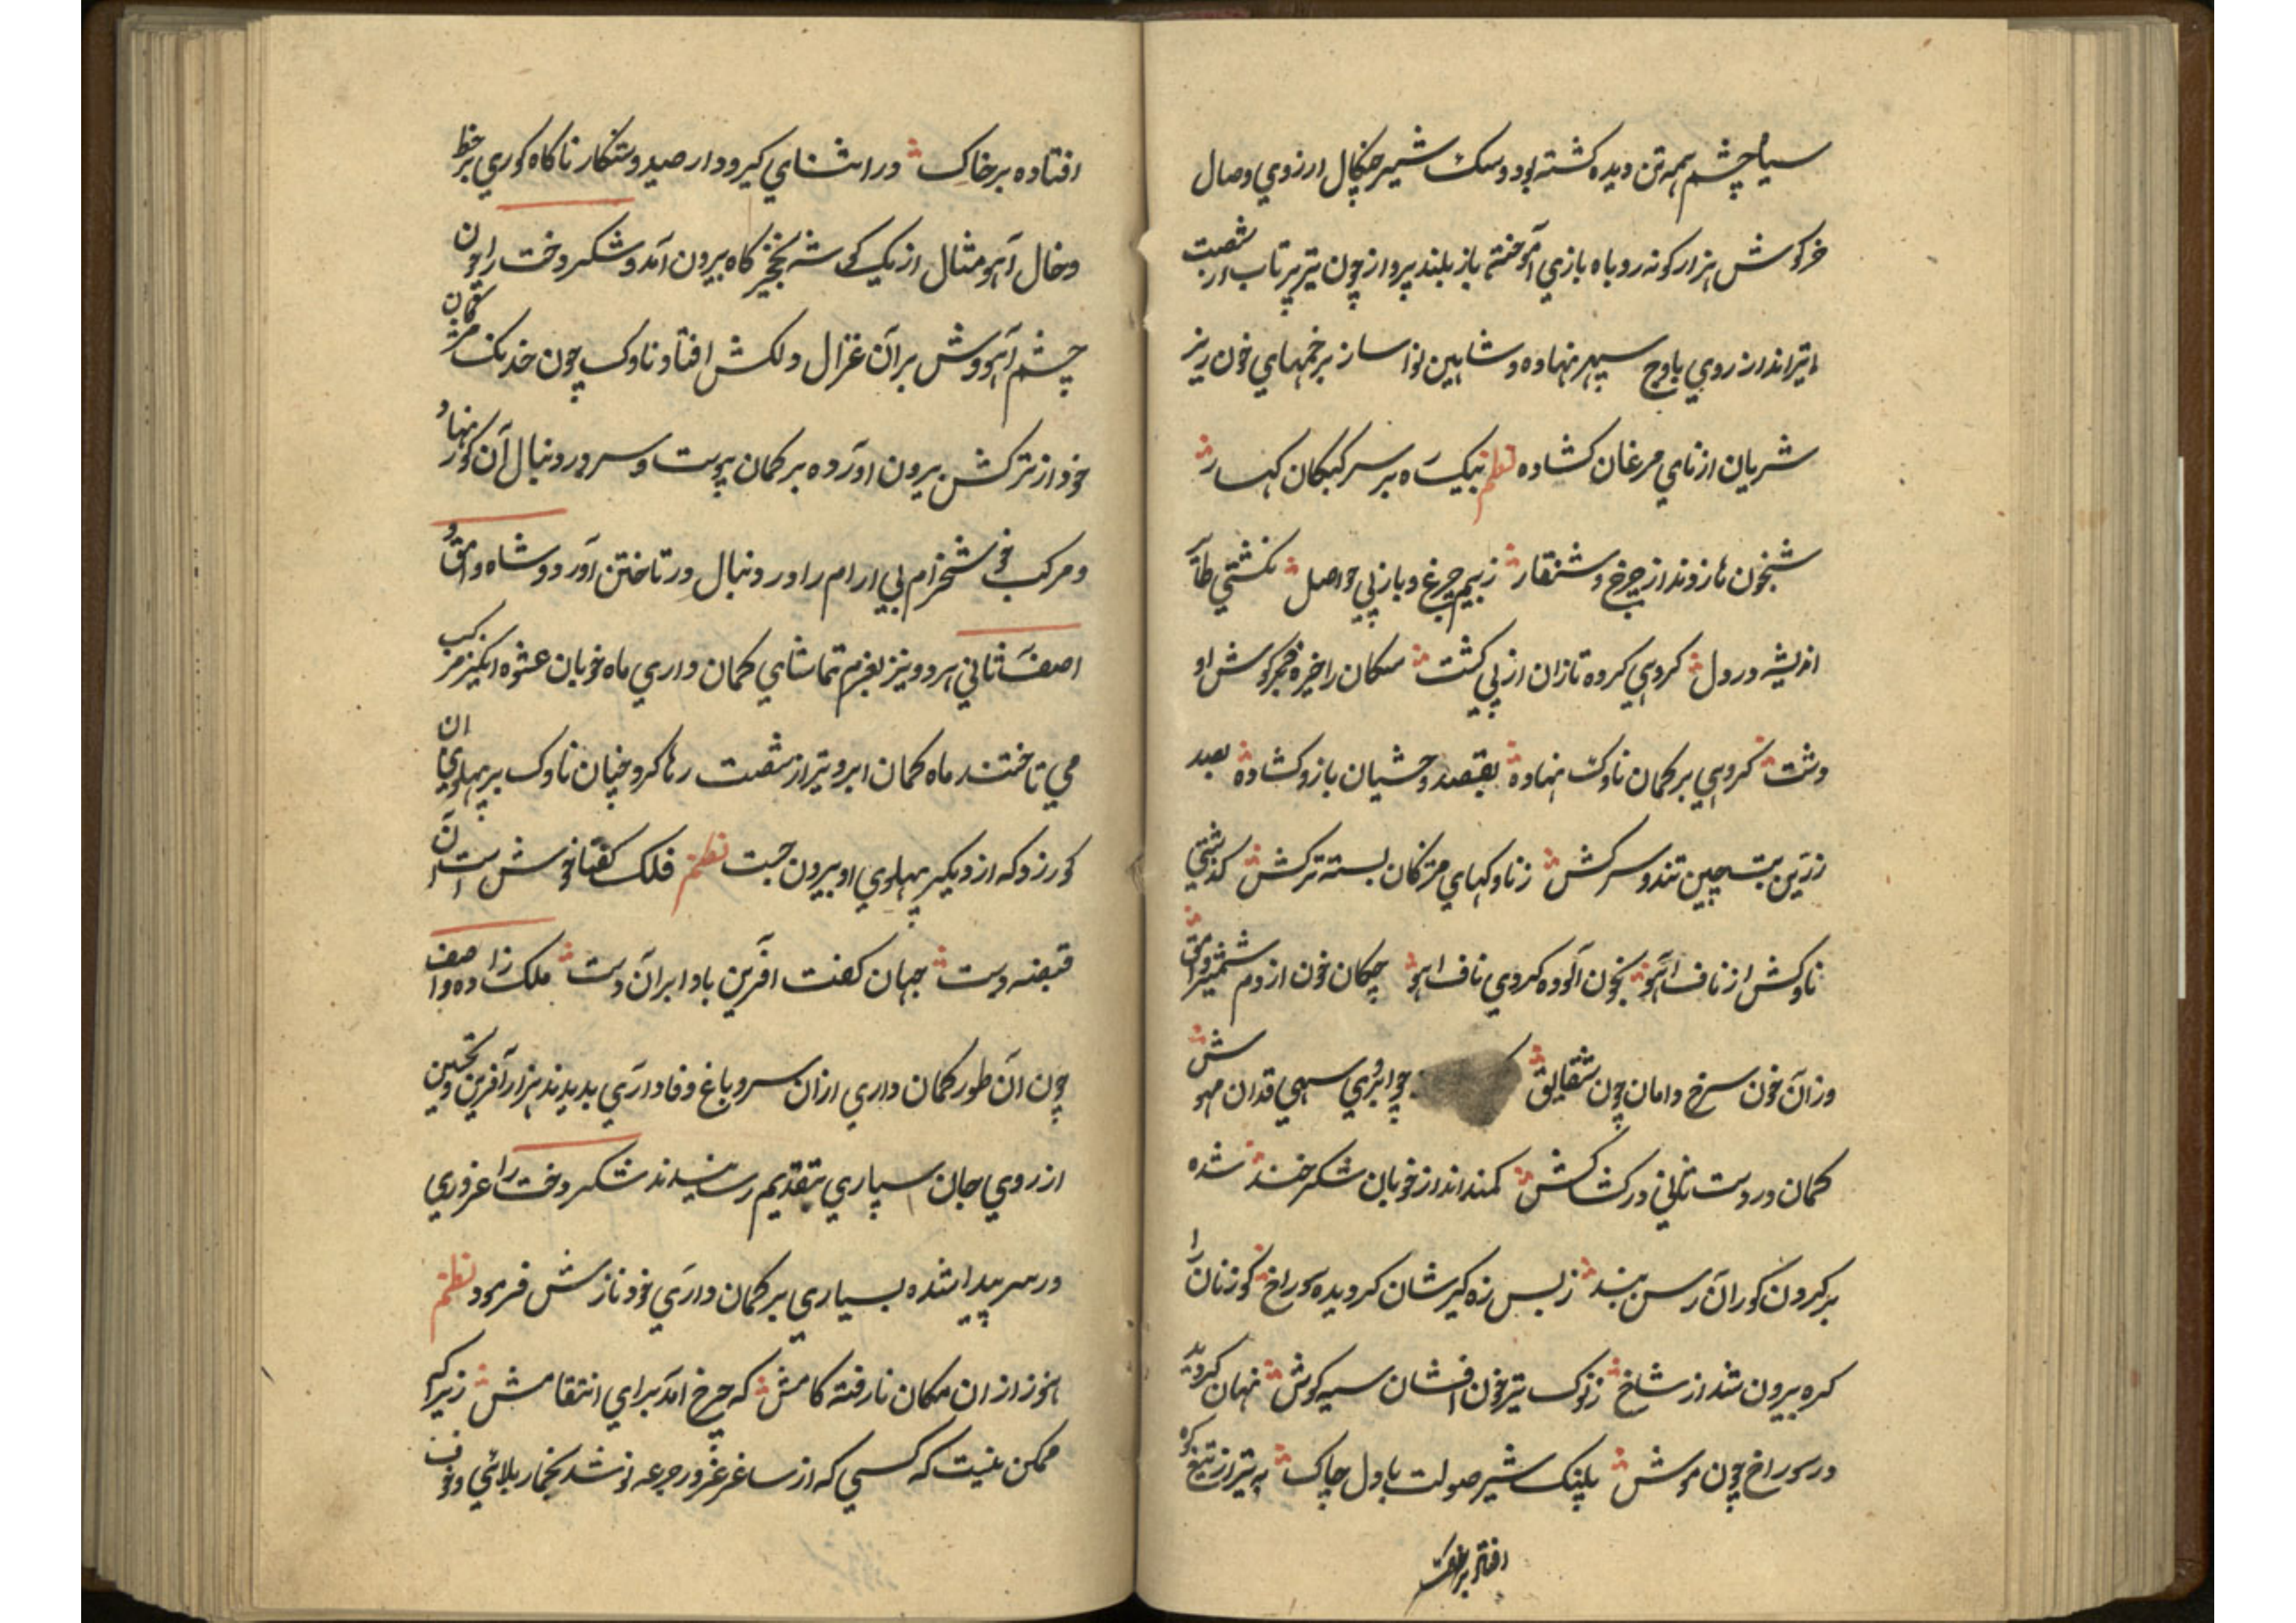 سیاه چشم همه تن دیده کشته بود و سک شیر چنکال ارزوي وصال
خرکوش هزار کونه روباه بازي آموخته باز بلند پرواز چون تیر پرتاب از شصت
تیرانداز روي باوج سپهر نهاده و شاهین نوا ساز بزخمهاي خون ریز
شریان از ناي مرغان کشاده نظم بیکه بر سر کبکان کهسار
شبخون ها زدند از چرخ و شنقار ز بیم چرغ و باز پي حواصل نکشتي طایر
اندیشه در دل کروهي کرده تازان از پي کشت سکان را خیره خرکوش او
دشت کروهي بر کمان ناوک نهاده بقصد وحشیان بازو کشاده بصید
زرین بت چین تند و سرکش ز ناوکهاي مژکان بسته ترکش کذشتي
ناوکش از ناف آهو بخون آلوده کردي ناف آهو چکان خون از دم شمشیر وامق
وزان خون سرخ دامان چون شقایق چو ابروي سهي قدان مهوش
کمان در دست ثاني در کشاکش کمند انداز خوبان شکرخند شده
بر کردن کوران رسن بند ز بس زه کیر شان کردیده سوراخ کوزنان را
کره بیرون شد از شاخ ز نوک تیر خون افشان سیه کوش نهان کردید
در سوراخ چون موش پلنک شیر صولت با دل چاک به تیر از تیغ کوه
افتاده بر خاک
افتاده بر خاک در اثناي کیر و دار صید و شکار ناکاه کوري بر خط
و خال آهو مثال از یک کوشه نخچیر کاه بیرون آمد و شکر دخت را چون
چشم آهووش بر آن غزال دلکش افتاد ناوک چون خدنک مژکان
خود از ترکش بیرون اورده بر کمان پیوست و سر در دنبال آن کور نهاد
و مرکب خوشخرام بي ارام را در دنبال در تاختن آورد و شاه وامق و
اصف ثاني هر دو نیز بعزم تماشاي کمان داري ماه خوبان عشوه انکیز مرکب
مي تاختند ماه کمان ابرو تیر از شصت رها کرد و چنان ناوک بر پهلوي ان
کور زد که از دیکر پهلوي او بیرون جست نظم فلک کفتا خوش است ان
قبضه دست جهان کفت آفرین بادا بران دست ملک زاده و اصف
چون ان طور کمان داري ازان سرو باغ وفاداري بدیدند هزار آفرین و تحسین
از روي جان سپاري بتقدیم رسانیدند شکر دخت را غروري
در سر پیدا شده بسیاري بر کمان داري خود نازش فرمود نظم
هنوز از ان مکان نا رفته کامش که چرخ آمد براي انتقامش زیرا که
ممکن نیست که کسي که از ساغر غرور جرعه نوشد بخمار بلائي و خوف